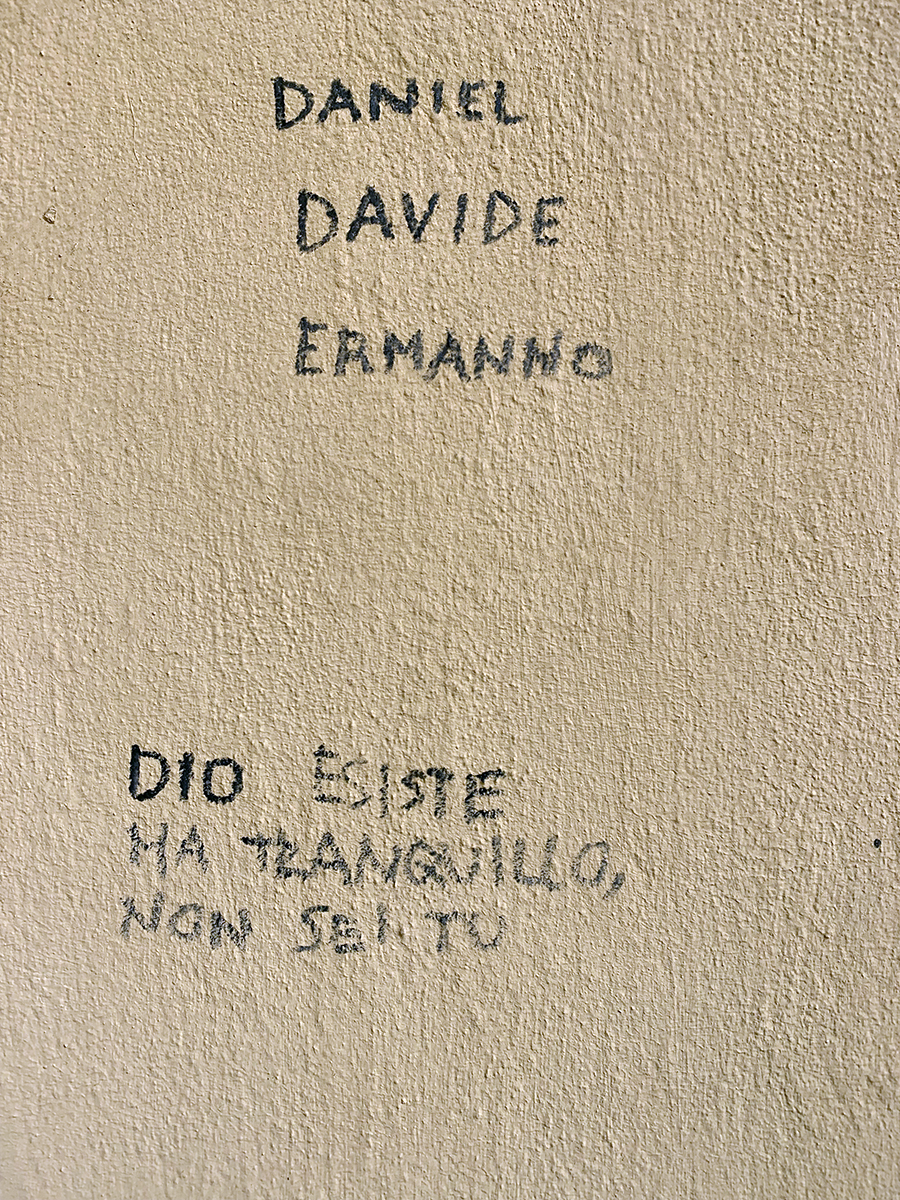 DANIEL
DAVIDE
ERMANNO
DIO ESISTE
HA TRANQUILLO,
NON SEI TU